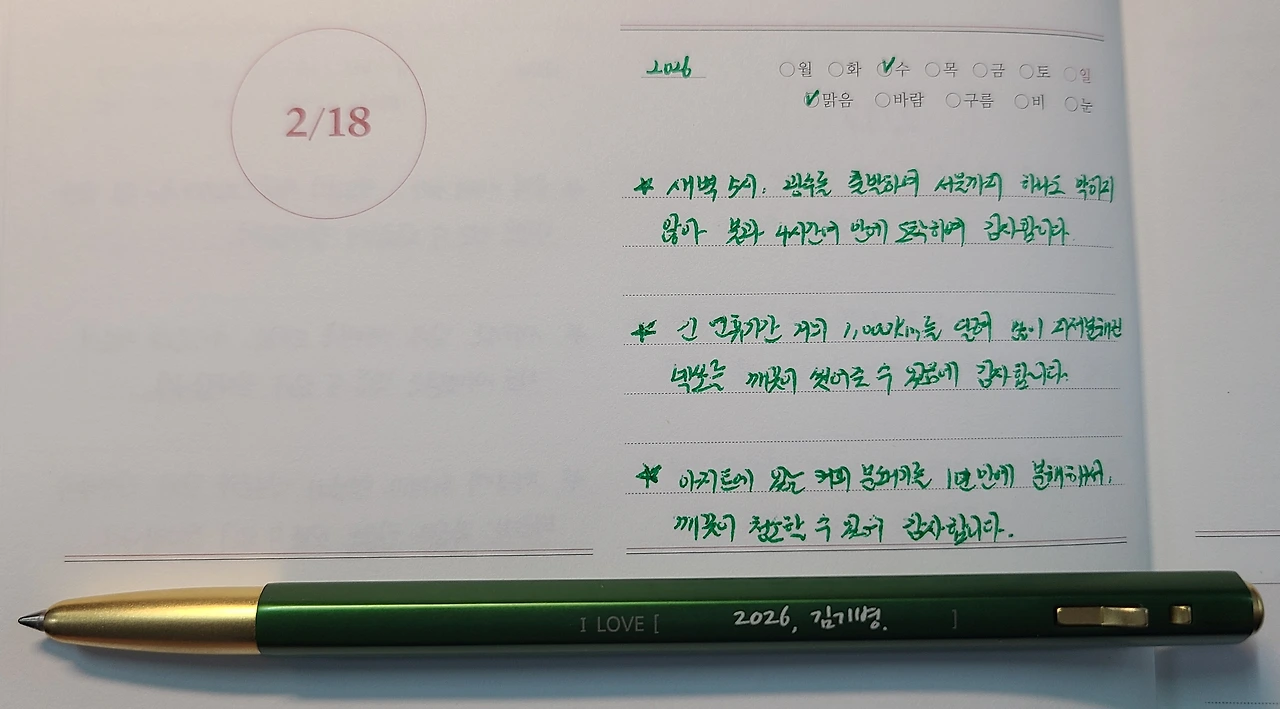 2/18
2026 ○월 ○화 ✓수 ○목 ○금 ○토 ○일
✓맑음 ○바람 ○구름 ○비 ○눈
☆ 새벽 5시. 광주를 출발하여 서울까지 하나도 막히지
않아 불과 4시간여 만에 도착하여 감사합니다.
☆ 긴 연휴기간 거의 1,000km를 달려 많이 지저분해진
넥쏘를 깨끗이 씻어줄 수 있음에 감사합니다.
☆ 아지트에 있는 커피 분쇄기를 1년만에 분해해서,
깨끗이 청소할 수 있어 감사합니다.
I LOVE [ 2026, 김기병. ]